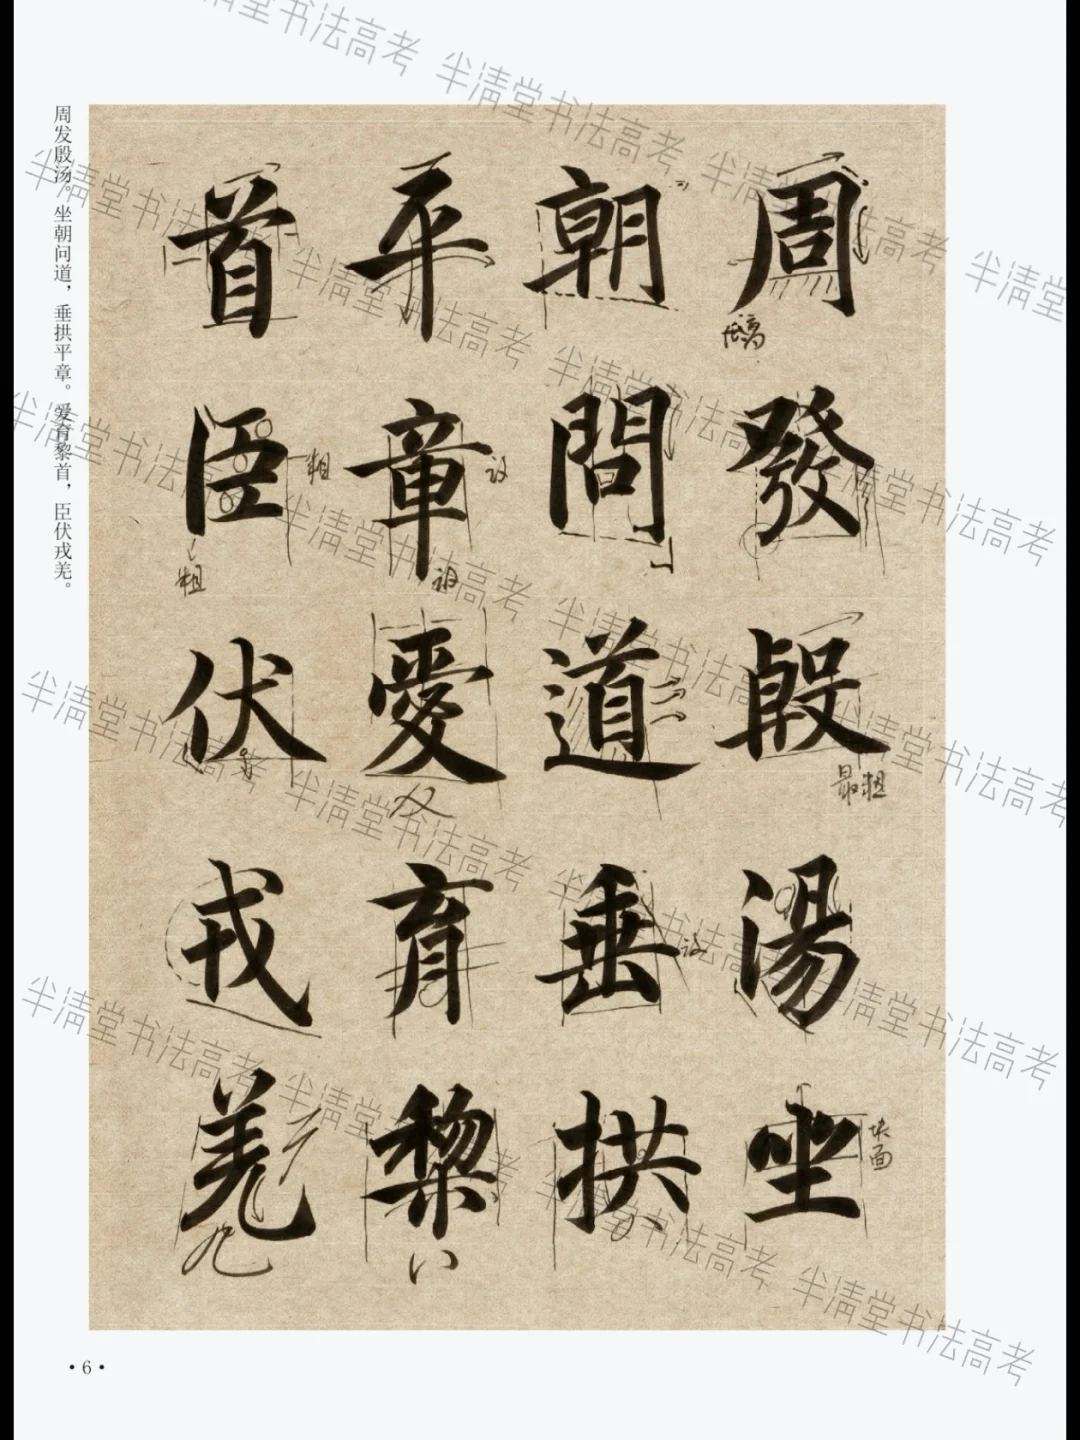 周發殷湯坐
朝問道垂拱
平章愛育黎
首臣伏戎羌
周发殷汤。坐朝问道，垂拱平章。爱育黎首，臣伏戎羌。
粗
粗
最粗
块面
八
九
•6•
半清堂书法高考